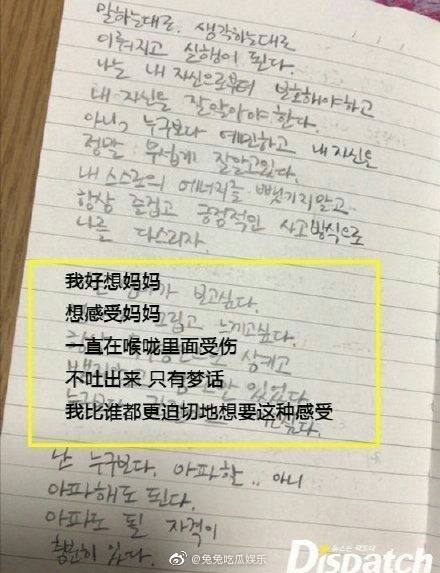 말하는대로. 생각하는대로
이뤄지고 실행이 된다.
나는 내 자신으로부터 보호해야하고
내 자신을 잘 알아야 한다.
아니, 누구보다 예민하고 내 자신을
정말 무섭게 잘알고있다.
내 스스로의 에너지를 뺏기지말고..
항상 즐겁고 긍정적인 사고방식으로
나를 다스리자.
가 보고싶다.
我好想妈妈
그립고 느끼고싶다.
想感受妈妈
삼키고
一直在喉咙里面受伤
있었다
不吐出来 只有梦话
싶다.
我比谁都更迫切地想要这种感受
난 누구보다. 아파할.. 아니
아파해도 된다.
아파도 될 자격이
충분히 있다.
@兔兔吃瓜娱乐
뉴스는 팩트다
Dispatch